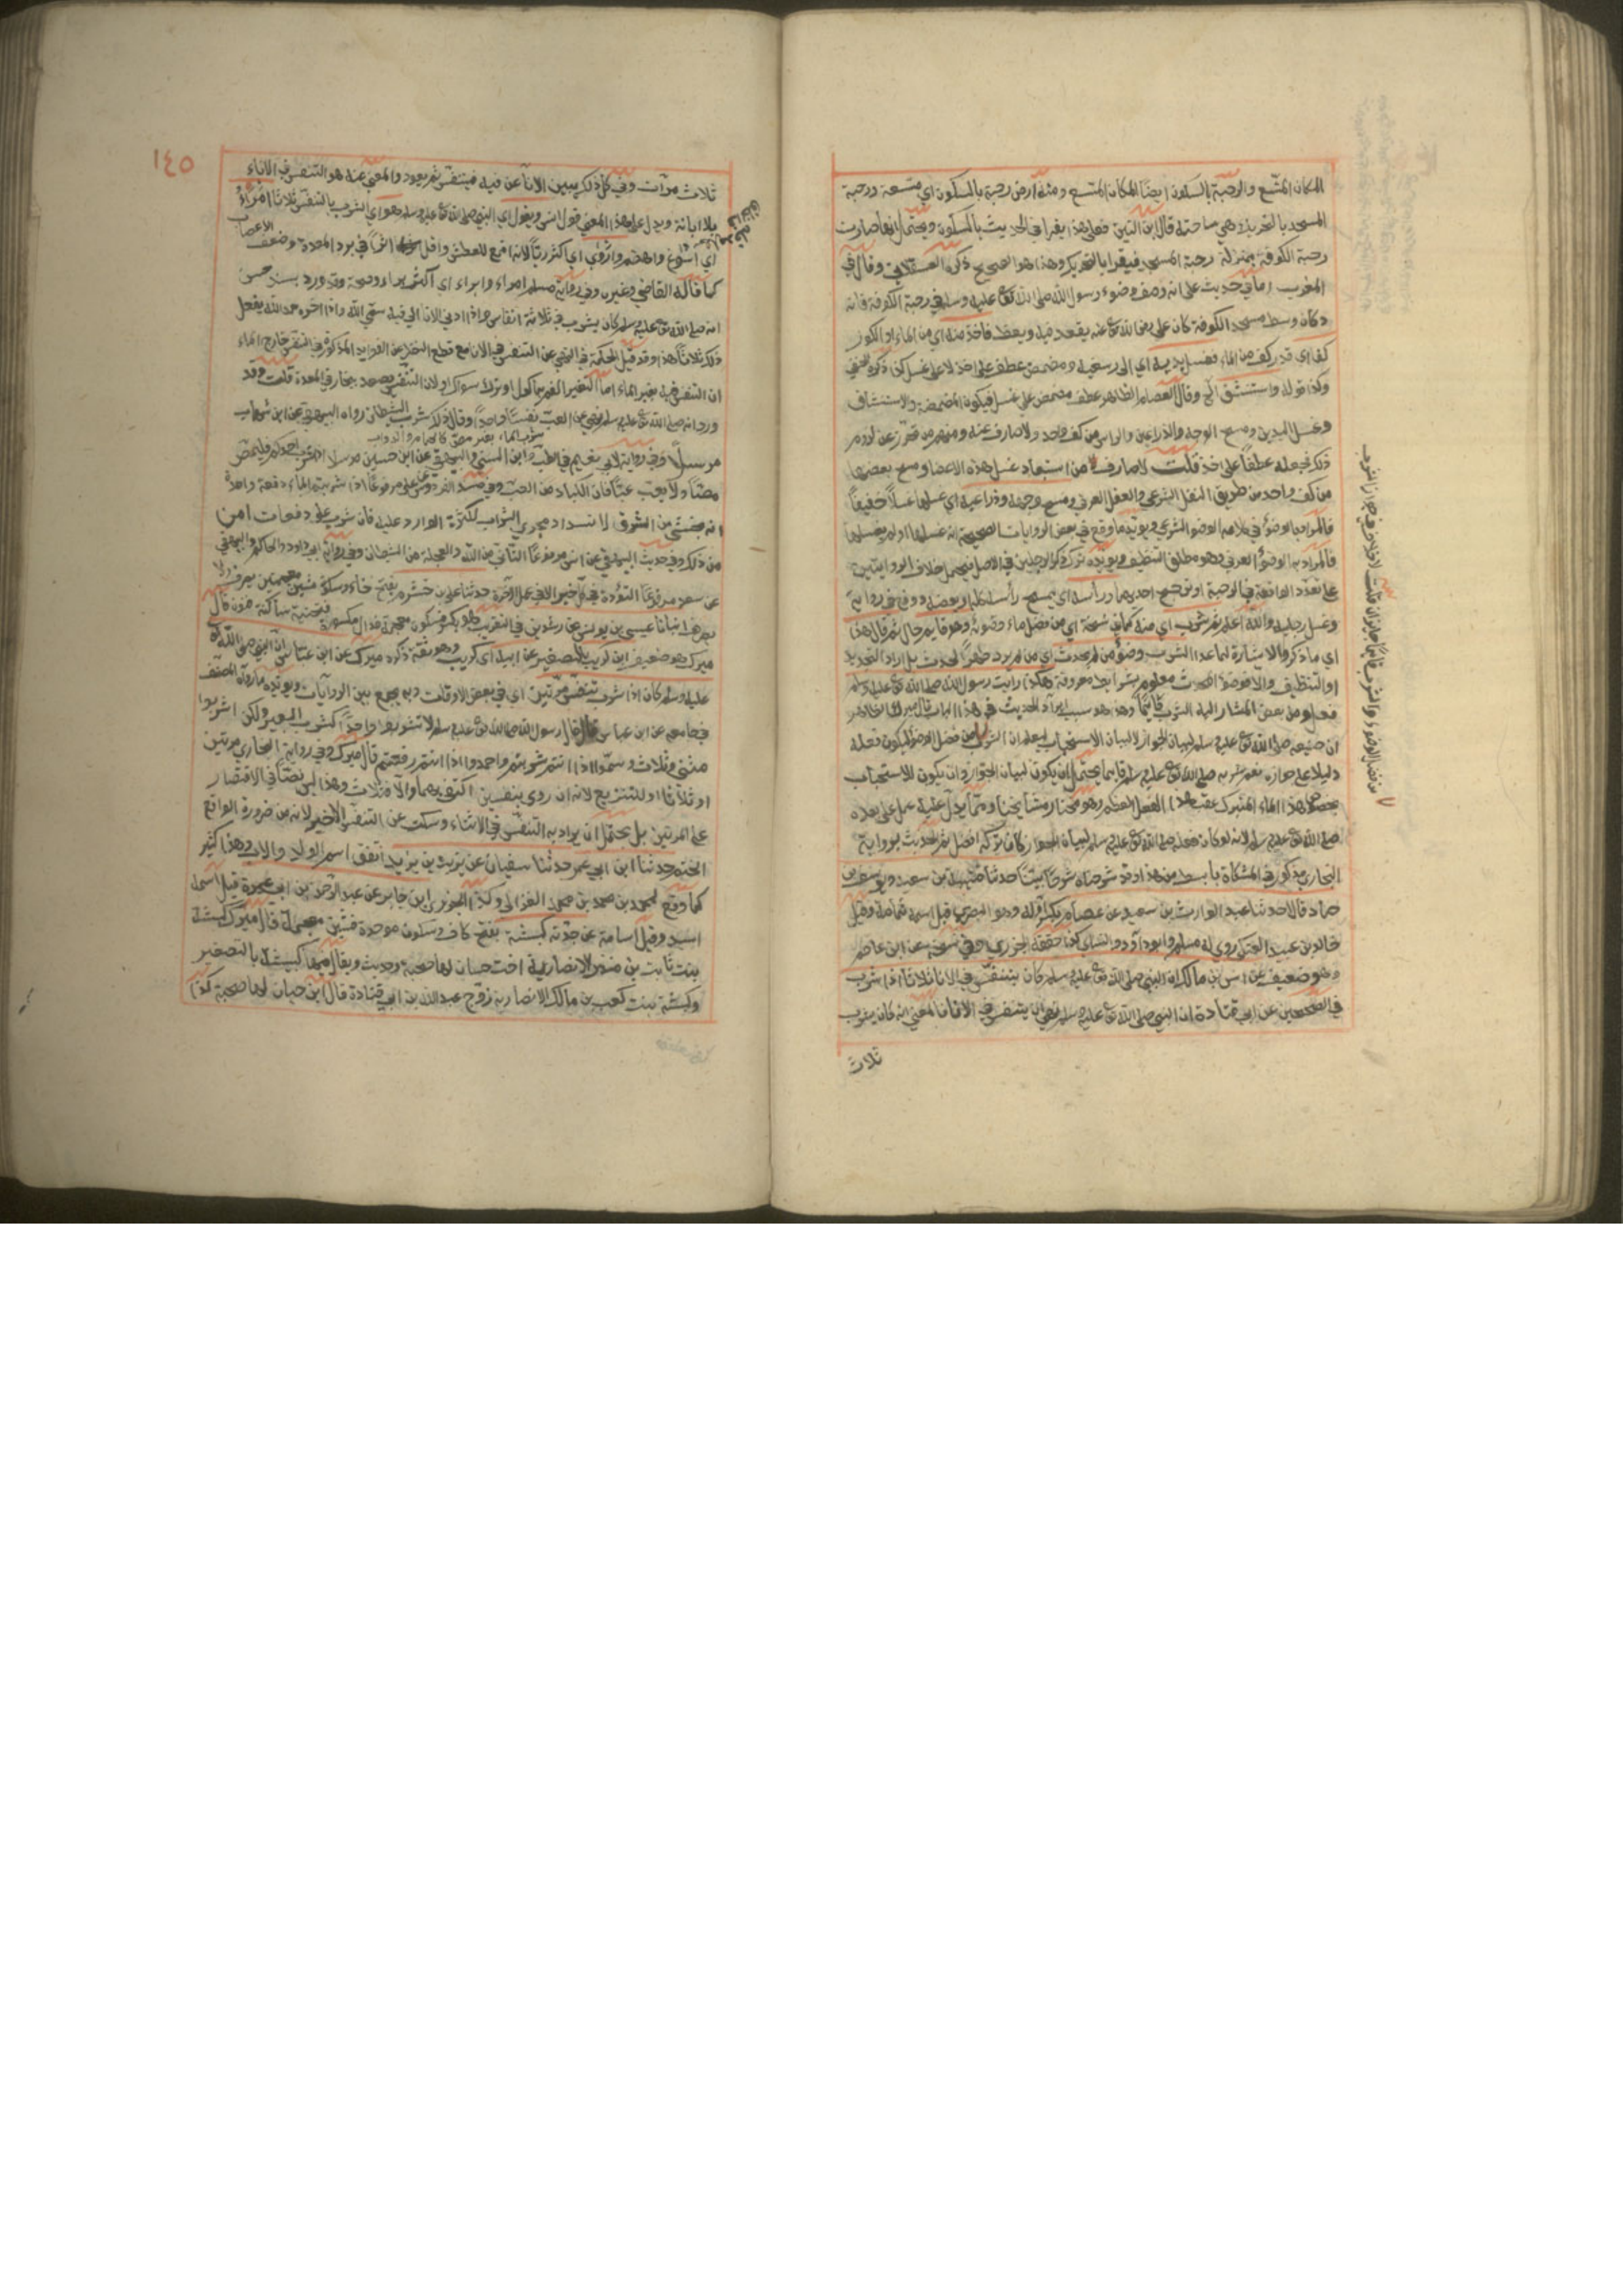 المكان المتسع والرحبة بالسكون ايضا المكان المتسع ومنه ارض رحبة بالسكون اي متسعة ورحبة
المسجد بالتحريك هي ساحته قال ابن التين فعلى هذا يقرا في الحديث بالسكون ويحتمل انها صارت
رحبة الكوفة بمنزلة رحبة المسجد فيقرا بالتحريك وهذا هو الصحيح ذكره العسقلاني وقال في
المغرب اما في حديث علي انه وصف وضوء رسول الله صلى الله تع عليه وسلم في رحبة الكوفة فانه
دكان وسط مسجد الكوفة كان علي رضي الله تع عنه يقعد فيه ويعظ فاخذ منه اي من الماء او الكوز
كفا اي قدر كف من الماء فغسل يديه اي الى رسغيه ومضمض عطف على اخذ لا على غسل كذا ذكره الحنفي
وكذا قوله واستنشق الخ وقال العصام الظاهر عطف مضمض على غسل فيكون المضمضة والاستنشاق
وغسل اليدين ومسح الوجه والذراعين والراس من كف واحد ولا صارف عنه ومنهم من فر عن لزوم
ذلك فجعله عطفا على اخذ قلت لا صارف من استبعاد غسل هذه الاعضا ومسح بعضها
من كف واحد من طريق النقل الشرعي والعقل العرفي ومسح وجهه وذراعيه اي غسلهما غسلا خفيفا
فالمراد بالوضوء في كلامه الوضوء الشرعي ويؤيده ما وقع في بعض الروايات الصحيحة انه غسلهما او لم يغسلهما
فالمراد به الوضوء العرفي وهو مطلق التنظيف ويؤيده ترك ذكر الرجلين في الاصل فيحمل خلاف الروايتين
على تعدد الواقعة في الرحبة او ورأسه اي مسح رأسه كله او بعضه ووقع في رواية
وغسل رجليه والله اعلم ثم شرب اي منه كما في نسخة اي من فضل ماء وضوئه وهو قايم حال ثم قال هذا
اي ما ذكر والاشارة لما عدا الشرب وضوء من لم يحدث اي من لم يرد طهر الحدث بل اراد التجديد
او التنظيف والا فوضوء المحدث معلوم بشرايط معروفة هكذا رايت رسول الله صلى الله تع عليه وسلم
فعل ومن بعض المشار اليه الشرب قائما وهذا هو سبب ايراد الحديث في هذا الباب قال ميرك الظاهر
ان صنيعه صلى الله تع عليه وسلم لبيان الجواز لا لبيان الاستحباب ليعلم ان الشرب من فضل الوضوء ليكون فعله
دليلا على جوازه نعم شربه صلى الله تع عليه وسلم قايما يحتمل ان يكون لبيان الجواز وان يكون للاستحباب
بخصوص هذا الماء المتبرك عقب هذا الفعل المعظم وهو مختار مشايخنا ومما يدل عليه عمل علي بعده
صلى الله تع عليه وسلم لانه لو كان فعله صلى الله تع عليه وسلم لبيان الجواز كان تركه افضل ثم الحديث برواية
البخاري مذكور في المشكاة بابسط من هذا وقد شرحناه شرحا بيّنا حدثنا قتيبة بن سعيد ويوسف بن
حماد قالا حدثنا عبد الوارث بن سعيد عن عصام بكسر اوله وهو البصري قيل اسمه ثمامة وقيل
خالد بن عبيد العتكي روى له مسلم وابو داود والنسائي كذا حققه الجزري وفي نسخة عن ابن عاصم
وهو ضعيف عن انس بن مالك ان النبي صلى الله تع عليه وسلم كان يتنفس في الاناء ثلاثا اذا شرب
في الصحيحين عن ابي قتادة ان النبي صلى الله تع عليه وسلم نهى ان يتنفس في الاناء فالمعنى انه كان يشرب
ثلاث
١٤٥
ثلاث مرات وفي كل ذلك يبين الاناء عن فيه فيتنفس ثم يعود والمنهي عنه هو التنفس في الاناء
بلا ابانة ويدل على هذا المعنى قول انس ويقول اي النبي صلى الله تع عليه وسلم هو اي الشرب بالتنفس ثلاثا امرأ
اي اسوغ واهضم واروى اي اكثر ريا لانه اقمع للعطش واقل اثرا في برد المعدة وضعف الاعصاب
كما قاله القاضي وغيره وفي رواية مسلم امراء وابراء اي اكثر براء وصحة وقد ورد بسند حسن
انه صلى الله تع عليه وسلم كان يشرب في ثلاثة انفاس واذا ادنى الاناء الى فيه سمّى الله واذا اخره حمد الله يفعل
ذلك ثلاثا هذا وقد قيل الحكمة في النهي عن التنفس في الاناء مع قطع النظر عن الفوايد المذكورة في التنفس خارج الماء
ان التنفس فيه يغير الماء اما لتغير الفم بمأكول او ترك سواك او لان التنفس يصعد بخار في المعدة قلت وقد
ورد انه صلى الله تع عليه وسلم نهى عن العب نفسا واحدا وقال ذلك شرب الشيطان رواه البيهقي عن ابن شهاب
مرسلا وفي رواية لابي نعيم في الطب وابن السني والبيهقي عن ابن حسين مرسلا اذا شرب احدكم فليمص
مصا ولا يعب عبا فان الكباد من العب وفي مسند الفردوس عن علي مرفوعا اذا شربتم الماء دفعة واحدة
انه يخشى من الشرق لانسداد مجرى الشراب لكثرة الوارد عليه فان شرب على دفعات امن
من ذلك وفي حديث البيهقي عن انس مرفوعا التأني من الله والعجلة من الشيطان وفي رواية ابي داود والحاكم والبيهقي
عن سعد مرفوعا التؤدة في كل خير الا في عمل الآخرة حدثنا علي بن خشرم بفتح خاء وسكون شين معجمتين يصرف ولا
يصرف انبانا عيسى بن يونس عن رشدين
ميرك وهو ضعيف ابن كريب بالتصغير عن ابيه اي كريب وهو ثقة ذكره ميرك عن ابن عباس ان النبي صلى الله تع
عليه وسلم كان اذا شرب تنفس مرتين اي في بعض الاوقات وبه يجمع بين الروايات ويؤيده ما رواه المصنف
في جامعه عن ابن عباس قال قال رسول الله صلى الله تع عليه وسلم لا تشربوا واحدا كشرب البعير ولكن اشربوا
مثنى وثلاث وسموا اذا انتم شربتم واحمدوا اذا انتم رفعتم قال ميرك وفي رواية البخاري مرتين
او ثلاثا او للتنويع لانه ان روي بنفسين اكتفى بهما والا فثلاث وهذا ليس نصا في الاقتصار
على المرتين بل يحتمل ان يراد به التنفس في الاثناء وسكت عن التنفس الاخير لانه من ضرورة الواقع
حدثنا ابن ابي عمر حدثنا سفيان عن يزيد بن يزيد اتفق اسم الولد والاب وهذا كثير
كما وقع لمحمد بن محمد بن محمد الغزالي وكذا الجزري ابن جابر عن عبد الرحمن بن ابي عمرة قيل اسمه
اسيد وقيل اسامة عن جدته كبشة بفتح كاف وسكون موحدة فشين معجمة قال ميرك كبشة
بنت ثابت بن منذر الانصارية اخت حسان لها صحبة وحديث ويقال فيها كبيشة بالتصغير
وكبشة بنت كعب بن مالك الانصارية زوج عبد الله بن ابي قتادة قال ابن حبان لها صحبة كذا